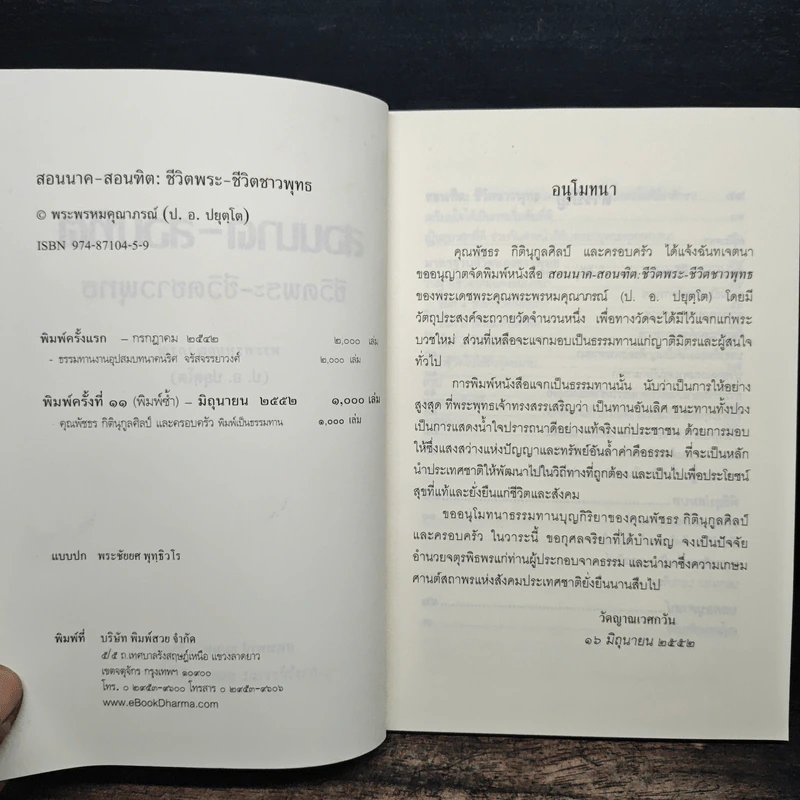 สอนนาค-สอนฑิต: ชีวิตพระ-ชีวิตชาวพุทธ
© พระพรหมคุณาภรณ์ (ป. อ. ปยุตฺโต)
ISBN 974-87104-5-9
พิมพ์ครั้งแรก – กรกฎาคม ๒๕๔๒ ๒,๐๐๐ เล่ม
- ธรรมทานงานอุปสมบทนาคนริศ จรัสจรรยาวงศ์ ๒,๐๐๐ เล่ม
พิมพ์ครั้งที่ ๑๑ (พิมพ์ซ้ำ) – มิถุนายน ๒๕๕๒ ๑,๐๐๐ เล่ม
- คุณพัชธร กิตินุกูลศิลป์ และครอบครัว พิมพ์เป็นธรรมทาน ๑,๐๐๐ เล่ม
แบบปก พระชัยยศ พุทฺธิวโร
พิมพ์ที่ บริษัท พิมพ์สวย จำกัด
๕/๕ ถ.เทศบาลรังสฤษฎ์เหนือ แขวงลาดยาว
เขตจตุจักร กรุงเทพฯ ๑๐๙๐๐
โทร. ๐ ๒๙๕๓-๙๖๐๐ โทรสาร ๐ ๒๙๕๓-๙๖๐๖
www.eBookDharma.com
อนุโมทนา
คุณพัชธร กิตินุกูลศิลป์ และครอบครัว ได้แจ้งฉันทเจตนา
ขออนุญาตจัดพิมพ์หนังสือ สอนนาค-สอนฑิต:ชีวิตพระ-ชีวิตชาวพุทธ
ของพระเดชพระคุณพระพรหมคุณาภรณ์ (ป. อ. ปยุตฺโต) โดยมี
วัตถุประสงค์จะถวายวัดจำนวนหนึ่ง เพื่อทางวัดจะได้มีไว้แจกแก่พระ
บวชใหม่ ส่วนที่เหลือจะแจกมอบเป็นธรรมทานแก่ญาติมิตรและผู้สนใจ
ทั่วไป
การพิมพ์หนังสือแจกเป็นธรรมทานนั้น นับว่าเป็นการให้อย่าง
สูงสุด ที่พระพุทธเจ้าทรงสรรเสริญว่า เป็นทานอันเลิศ ชนะทานทั้งปวง
เป็นการแสดงน้ำใจปรารถนาดีอย่างแท้จริงแก่ประชาชน ด้วยการมอบ
ให้ซึ่งแสงสว่างแห่งปัญญาและทรัพย์อันล้ำค่าคือธรรม ที่จะเป็นหลัก
นำประเทศชาติให้พัฒนาไปในวิถีทางที่ถูกต้อง และเป็นไปเพื่อประโยชน์
สุขที่แท้และยั่งยืนแก่ชีวิตและสังคม
ขออนุโมทนาธรรมทานบุญกิริยาของคุณพัชธร กิตินุกูลศิลป์
และครอบครัว ในวาระนี้ ขอกุศลจริยาที่ได้บำเพ็ญ จงเป็นปัจจัย
อำนวยจตุรพิธพรแก่ท่านผู้ประกอบจาคธรรม และนำมาซึ่งความเกษม
ศานต์สถาพรแห่งสังคมประเทศชาติยั่งยืนนานสืบไป
วัดญาณเวศกวัน
๑๖ มิถุนายน ๒๕๕๒